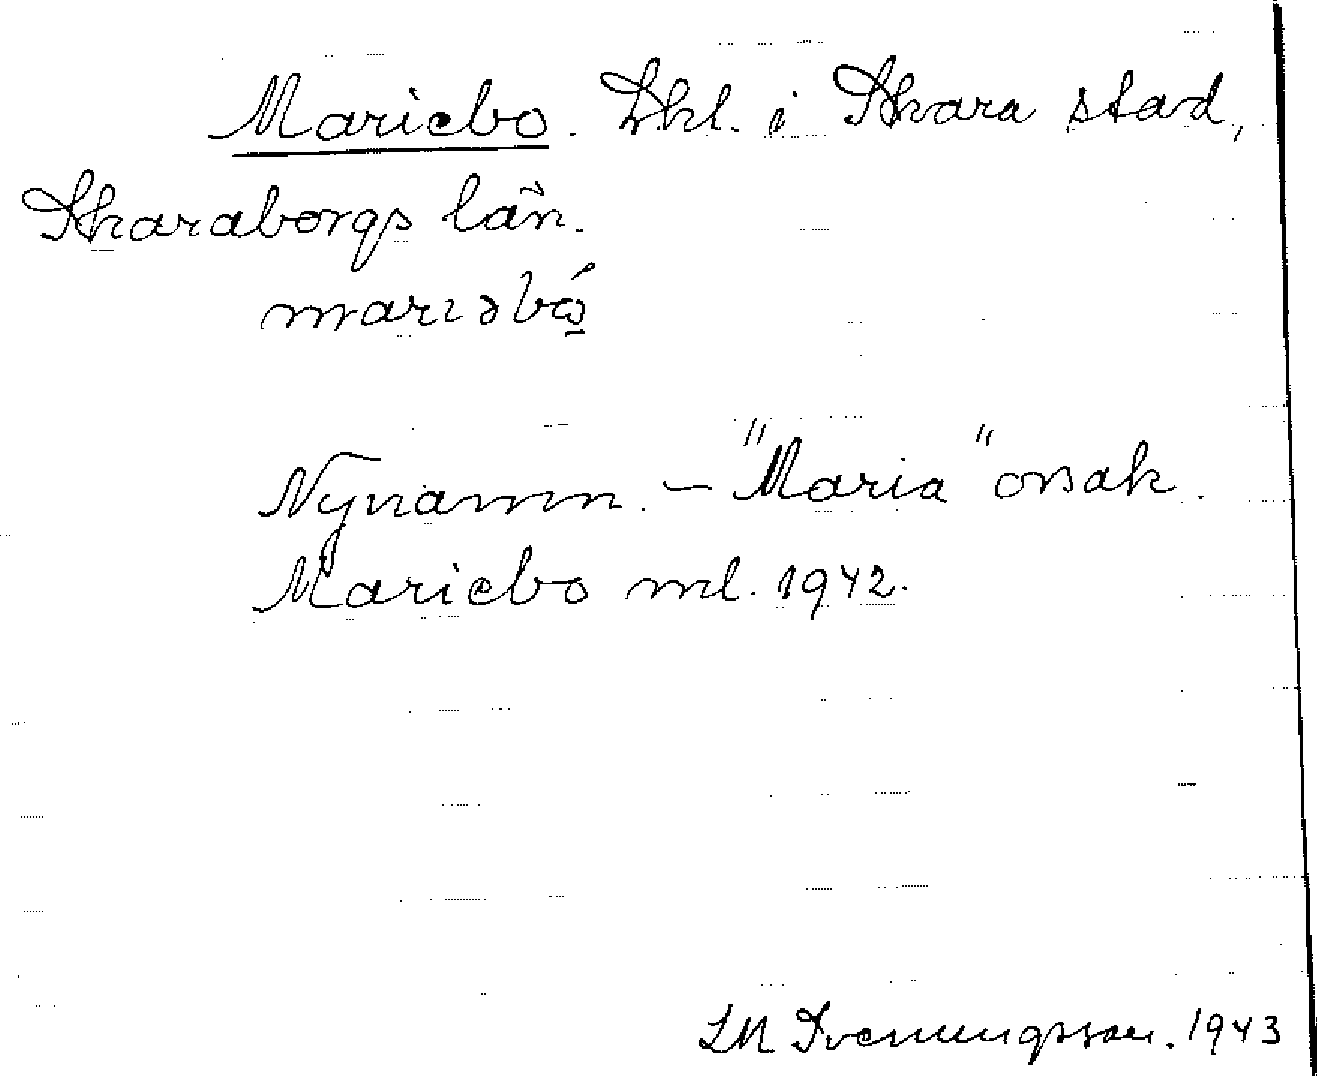 Mariebo. Lhl. i Skara stad,
Skaraborgs län.
marıəbó̲
Nynamn. – "Maria" orsak.
Mariebo ml. 1942.
LM Svenungsson. 1943